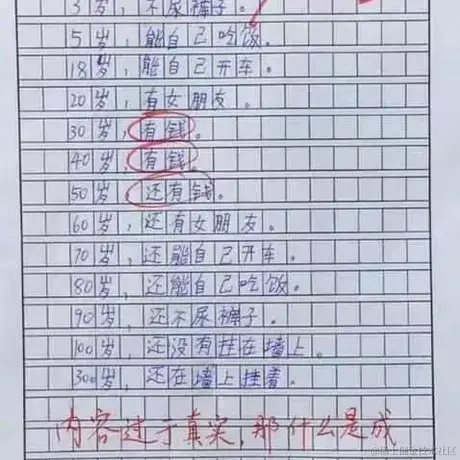 3岁，不尿裤子。
5岁，能自己吃饭。
18岁，能自己开车。
20岁，有女朋友。
30岁，有钱。
40岁，有钱。
50岁，还有钱。
60岁，还有女朋友。
70岁，还能自己开车。
80岁，还能自己吃饭。
90岁，还不尿裤子。
100岁，还没有挂在墙上。
300岁，还在墙上挂着。
内容过于真实，那什么是成
@稀土掘金技术社区